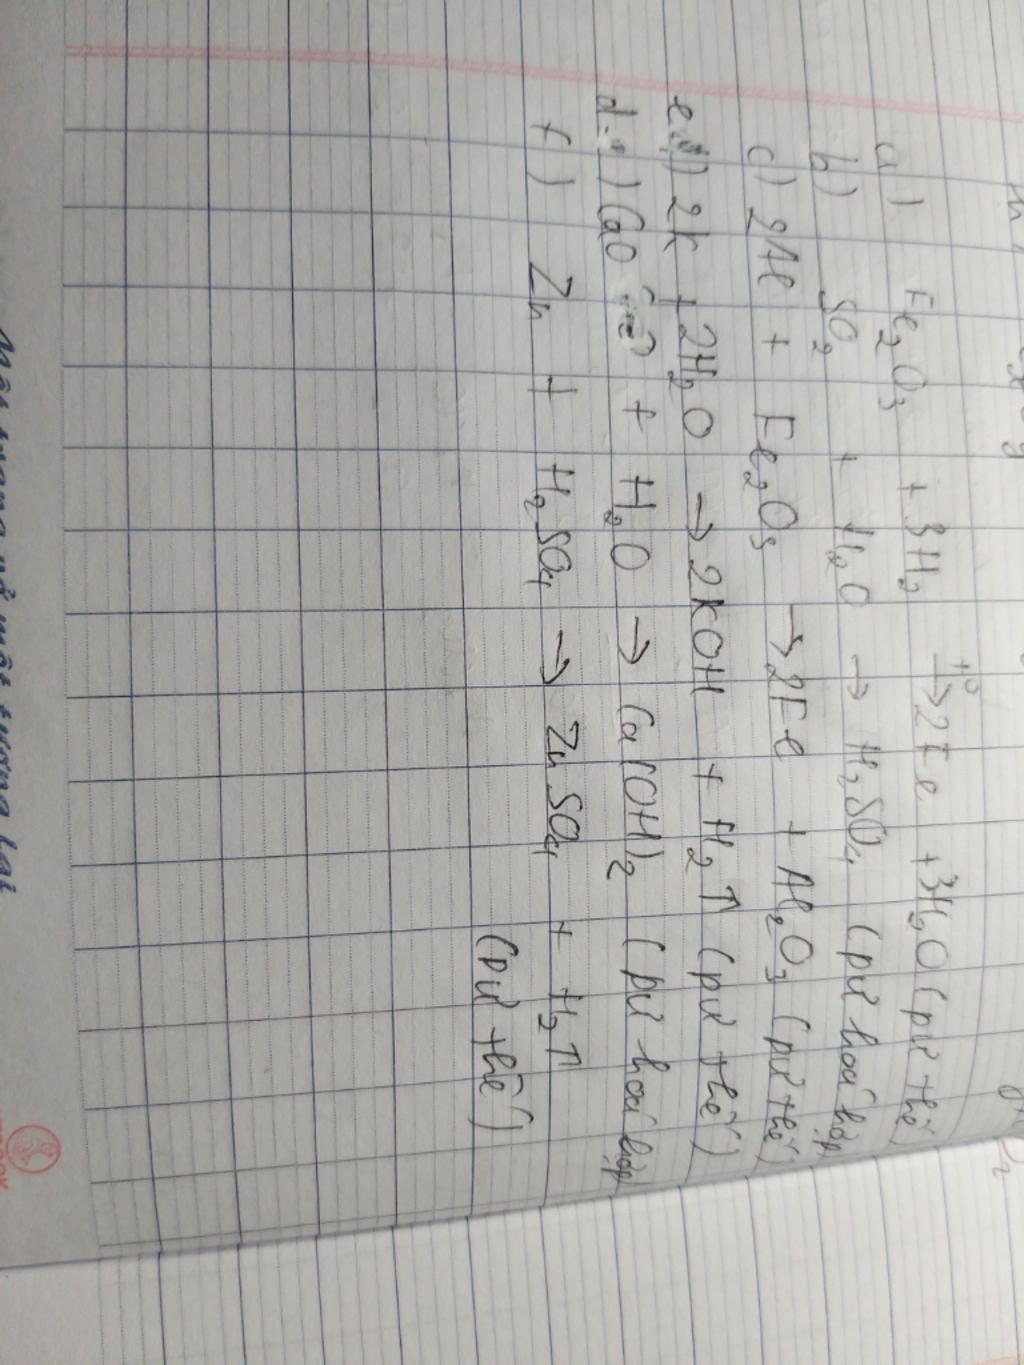 a) Fe2O3 + 3H2 t°→ 2Fe + 3H2O (pứ thế)
b) SO2 + H2O → H2SO4 (pứ hoá hợp)
c) 2Al + Fe2O3 → 2Fe + Al2O3 (pứ thế)
e) 2K + 2H2O → 2KOH + H2↑ (pứ thế)
d) CaO + H2O → Ca(OH)2 (pứ hoá hợp)
f) Zn + H2SO4 → ZnSO4 + H2↑
(pứ thế)
tương lai